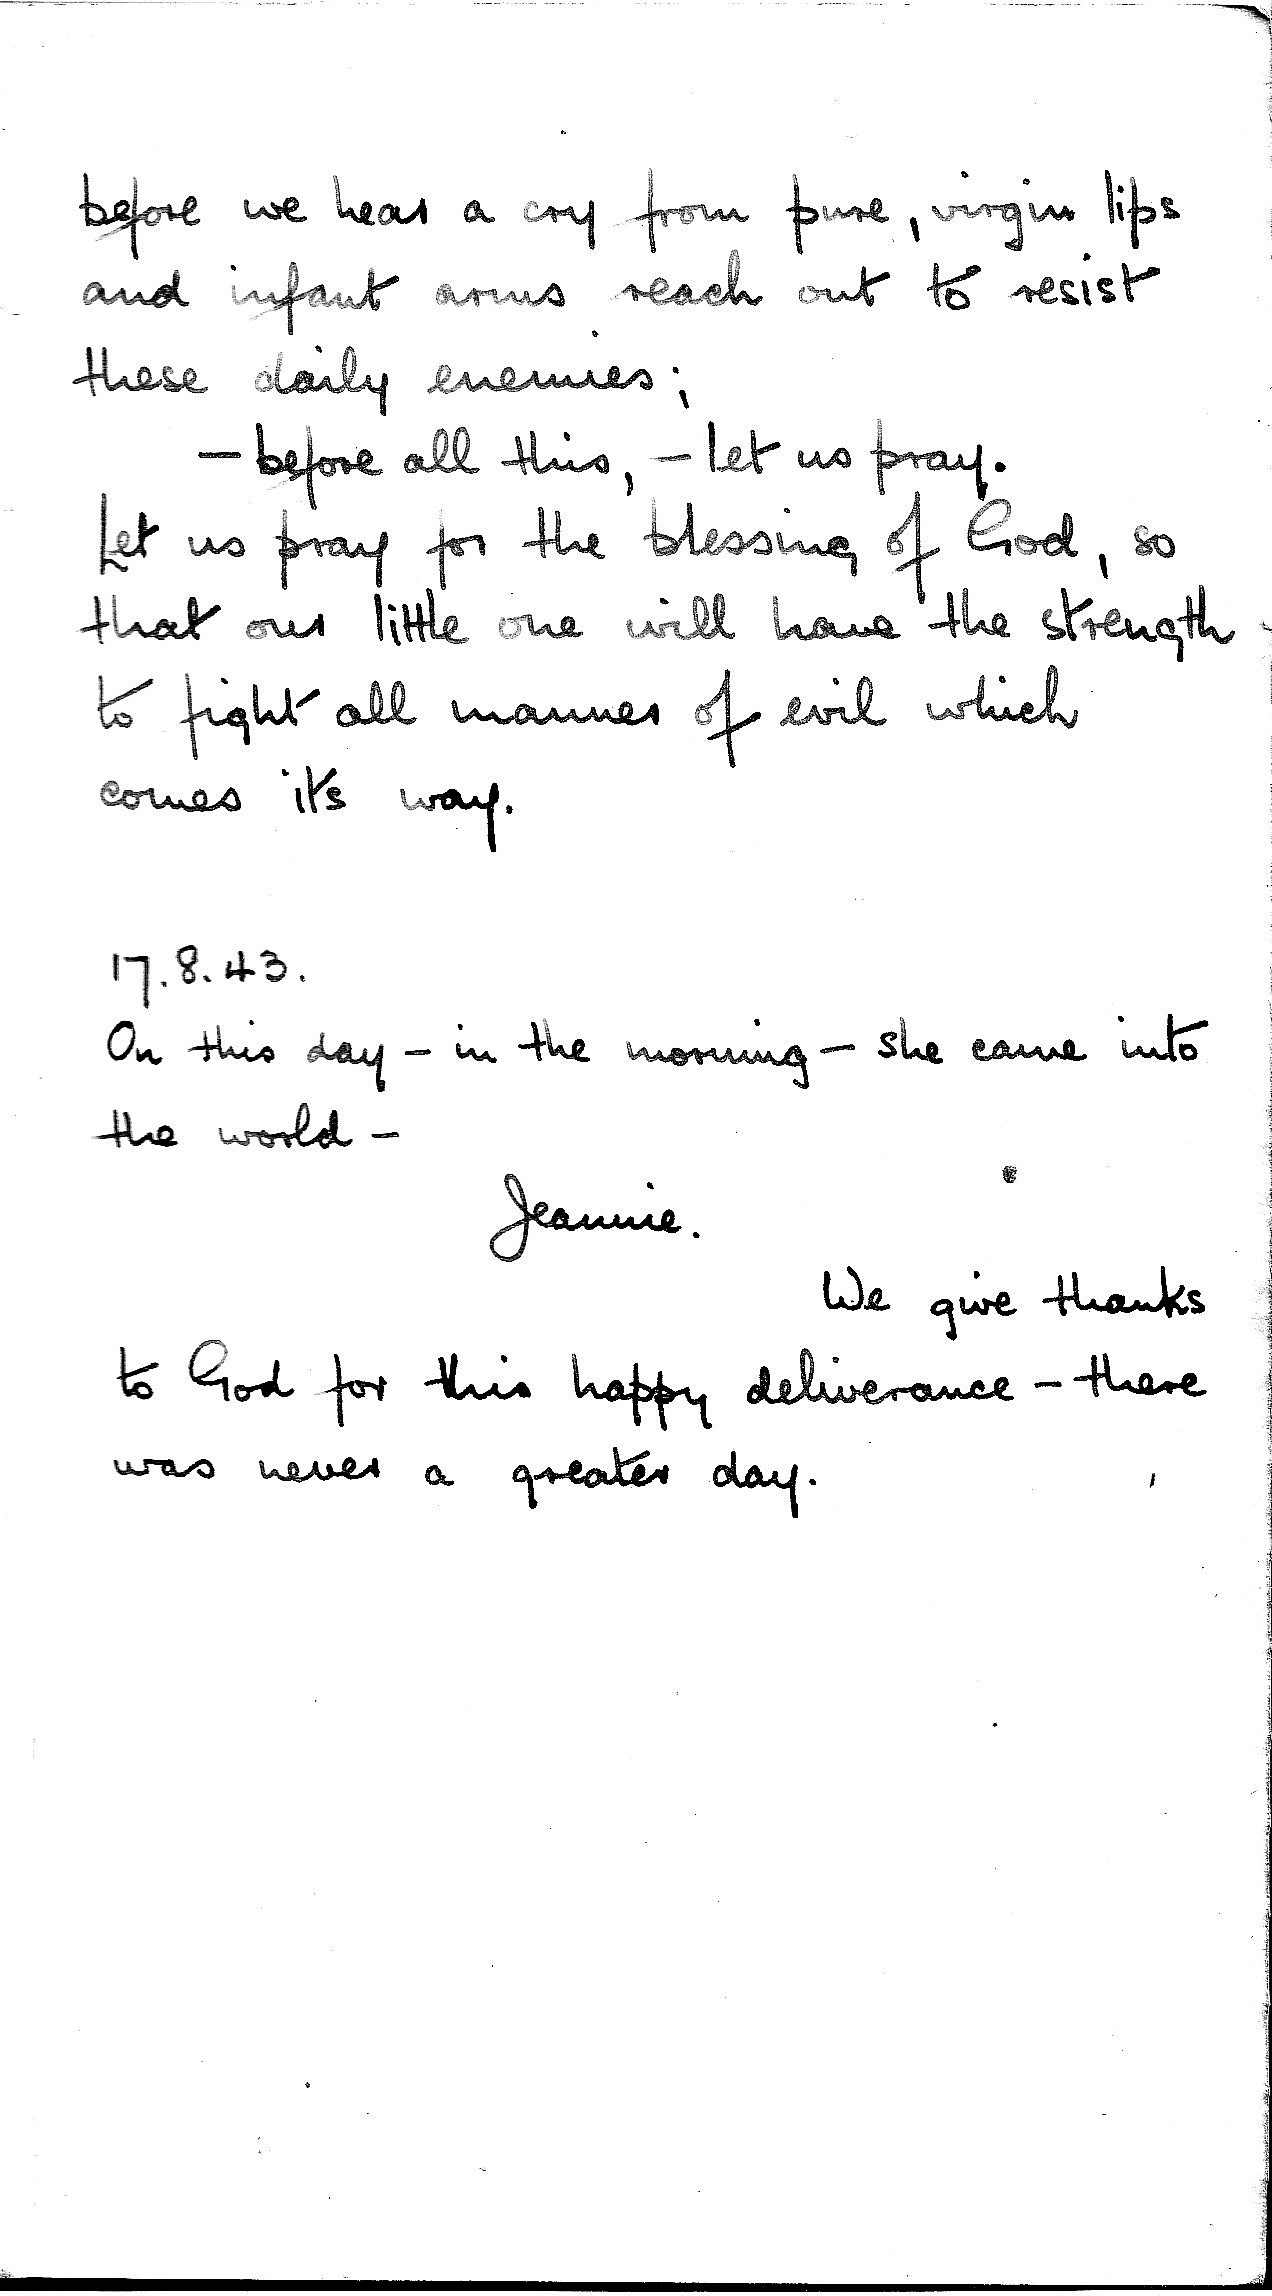 before we hear a cry from pure, virgin lips
and infant arms reach out to resist
these daily enemies;
– before all this, – let us pray.
Let us pray for the blessing of God, so
that our little one will have the strength
to fight all manner of evil which
comes it's way.
17.8.43.
On this day – in the morning – she came into
the world –
Jeannie.
We give thanks
to God for this happy deliverance – there
was never a greater day.